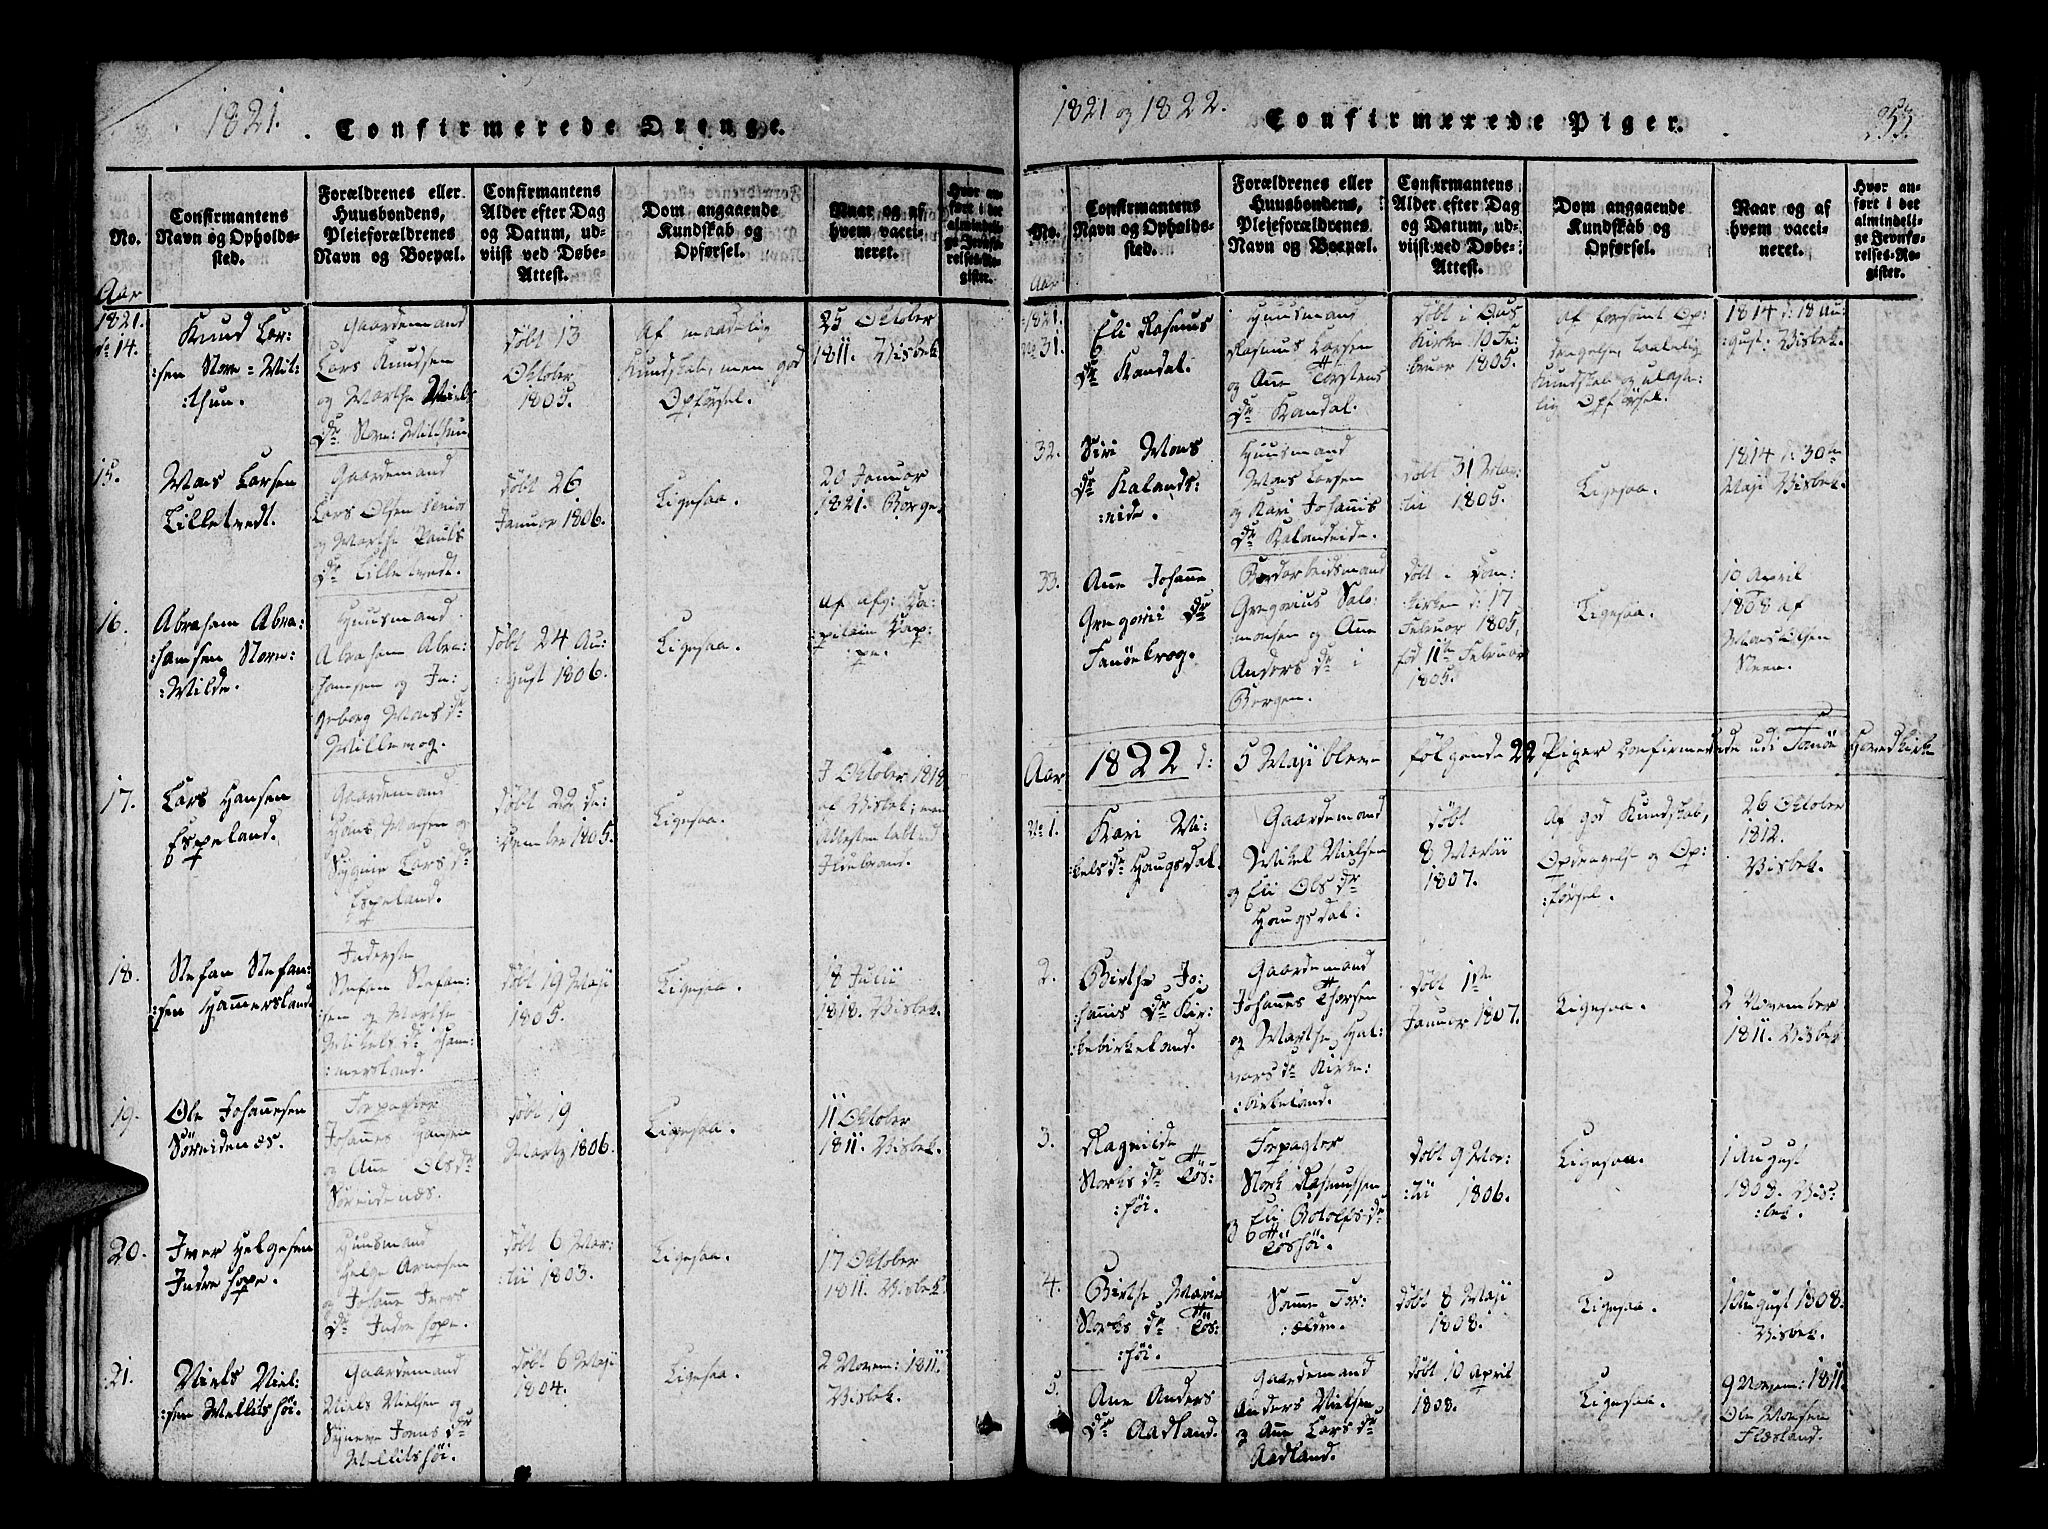 1821.
Confirmerede Drenge.
No.
Confirmantens
Navn og Opholds-
sted.
Forældrenes eller
Huusbondens,
Plejeforældrenes
Navn og Boepæl.
Confirmantens
Alder efter Dag
og Datum, ud-
viist ved Døbe-
Attest.
Dom angaaende
Kundskab og
Opførsel.
Naar og af
hvem vacci-
neret.
Hvor an-
ført i det
almindeli-
ge Jevnfø-
relses-Re-
gister.
Aar
1821.
No 14.
Knud Lar:
:sen Store-Mil:
:thun.
Gaardemand
Lars Knudsen
og Marthe Niels
Dr. Store-Milthun.
Døbt 13
Oktober
1805.
Af maadelig
Kundskab, men god
Opførsel.
25 Oktober
1811. Visbek.
15.
Mons Larsen
Lilletvedt.
Gaardemand
Lars Olsen senior
og Marthe Pauls
Dr. Lilletvedt.
Døbt 26
Januar 1806.
Ligesaa.
20 Januar
1821. Borge.
16.
Abraham Abra:
:hamsen Store:
:Milde.
Huusmand
Abraham Abra:
:hamsen og In:
geborg Mons dr
Døbt 24 Au:
:gust 1806.
Ligesaa.
Af afg: Ca:
:pitain
17.
Lars Hansen
Espeland.
Gaardemand
Hans Monsen og
Lars dr
Espeland.
Døbt 22 De:
:cember 1805.
Ligesaa.
7 Oktober 1818
af Visbek; men
Attesten tabt ved
Ildebrand.
18.
Stefan Stefan:
:sen Hamersland.
Inderste
Stefan Stefan:
:sen og Marthe
Mikels dr Ham:
:mersland.
Døbt 19 Maji
1805.
Ligesaa.
8 Julii
1818. Visbek.
19.
Ole Johannesen
Søreidenæs.
Forpagter
Johannes Hansen
og Ane Ols dr
Søreidenæs.
Døbt 19
Marty 1806.
Ligesaa.
11 Oktober
1811. Visbek.
20.
Iver Helgesen
Indre Hope.
Huusmand
Helge Arnesen
og Johanne Ivers
Dr. Indre Hope.
Døbt 6 Mar:
:tii 1803.
Ligesaa.
17 Oktober
1811. Visbek.
21.
Niels Niel:
:sen Mellitshøi.
Gaardemand
Niels Nielsen og
Synneve Jons dr
Mellitshøi.
Døbt 6 Maji
1804.
Ligesaa.
2 Novem: 1811.
Visbek.
1821 og 1822.
Confirmerede Piger.
255.
No.
Confirmantens
Navn og Opholds-
sted.
Forældrenes eller
Huusbondens,
Plejeforældrenes
Navn og Boepæl.
Confirmantens
Alder efter Dag
og Datum, ud-
viist ved Døbe-
Attest.
Dom angaaende
Kundskab og
Opførsel.
Naar og af
hvem vacci-
neret.
Hvor an-
ført i det
almindeli-
ge Jevnfø-
relses-Re-
gister.
Aar
1821.
No 31.
Eli Rasmus
Dr. Kandal.
Huusmand
Rasmus Larsen
og Ane Torstens
Dr. Kandal.
Døbt i Ous
Kirke 10 Fe:
:bruar 1805.
Af forsømt Op:
dragelse, taalelig
Kundskab og ulaste:
lig Opførsel.
1814 d: 18 Au:
:gust. Visbek.
32.
Siri Mons
Dr. Kalands:
:eide.
Huusmand
Mons Larsen
og Kari Johanis
Dr. Kalandseide.
Døbt 31 Mar:
:tii 1805.
Ligesaa.
1814 d: 30te
Maji Visbek.
33.
Ane Johanne
Gregorii Dr
Fanøekrog.
Bordarbeidsmand
Gregorius Salo:
monsen og Ane
Anders dr i
Bergen.
Døbt i Dom:
:kirken d: 17
Februar 1805,
fød 11te Februar
1805.
Ligesaa.
10 April
1808 af
Mons Olsen
Steen.
Aar 1822 d: 5 Maji bleve følgende 22 Piger Confirmerede udi Fanøe Hovedkirke
No 1.
Kari Mi:
:kels dr Haugsdal.
Gaardemand
Mikel Nielsen
og Eli Ols dr
Haugsdal.
Døbt
8 Martii
1807.
Af god Kundskab,
Opdragelse og Op:
:førsel.
26 Oktober
1812.
Visbek.
2.
Birthe Jo:
:hannis Dr Kir:
:kebirkeland.
Gaardemand
Johannes Thorsen
og Marthe Hal:
:vors dr Kirke:
:birkeland.
Døbt 11te
Januar 1807.
Ligesaa.
2 November
1811. Visbek.
3.
Ragnilde
Storks dr Tøs:
:høi.
Forpagter
Stork Rasmussen
og Eli Botolfs dr
Døbt 9 Mar:
:tii 1806.
Ligesaa.
1 August
1808. Vis:
:bek.
4.
Birthe Marie
Storks dr Tøs:
:høi.
Samme For:
:ældre.
Døbt 8 Maji
1808.
Ligesaa.
1 August 1808.
Visbek.
5.
Ane Anders
Dr Aadland.
Gaardemand
Anders Nielsen
og Ane Lars dr
Aadland.
Døbt 10 April
1808.
Ligesaa.
9 Novem: 1811.
Ole Monsen
Flesland.